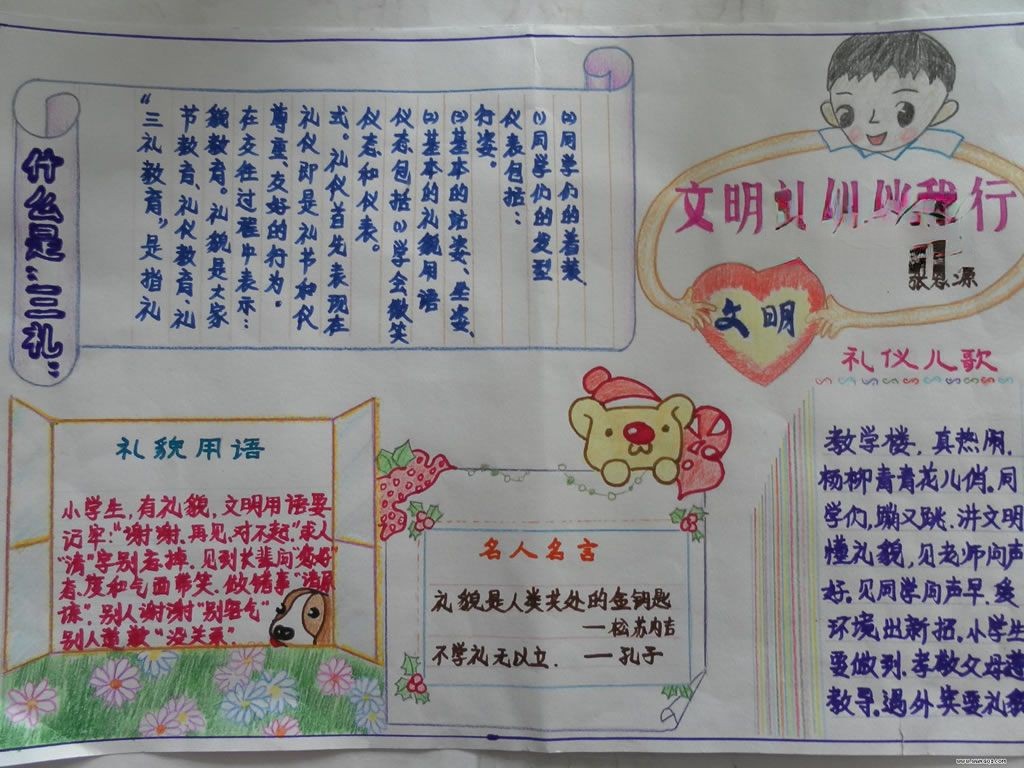 什么是"三礼"
"三礼教育"是指礼
节教育、礼仪教育、礼
貌教育。礼貌是大家
在交往过程中表示:
尊重、友好的行为。
礼仪即是礼节和仪
式。礼仪首先表现在
仪态和仪表。
仪态包括(1)学会微笑
(2)基本的礼貌用语
(3)基本的站姿、坐姿、
行姿。
仪表包括:
(1)同学们的发型
(2)同学们的着装、
文明礼仪伴我行
张 源
文明
礼仪儿歌
教学楼,真热闹,
杨柳青青花儿俏。同
学们,蹦又跳,讲文明
懂礼貌,见老师问声
好。见同学问声早。
环境出新招。小学生
要做到。孝敬父母遵
教导。遇外宾要礼貌
礼貌用语
小学生,有礼貌,文明用语要
记牢:"谢谢、再见、对不起"。求人
"请"字别忘掉。见到长辈问"您好"
着,度和气面带笑。做错事"请原
谅"。别人谢谢"别客气"
别人道歉"没关系"
名人名言
礼貌是人类共处的金钥匙
—松苏内吉
不学礼无以立. —孔子